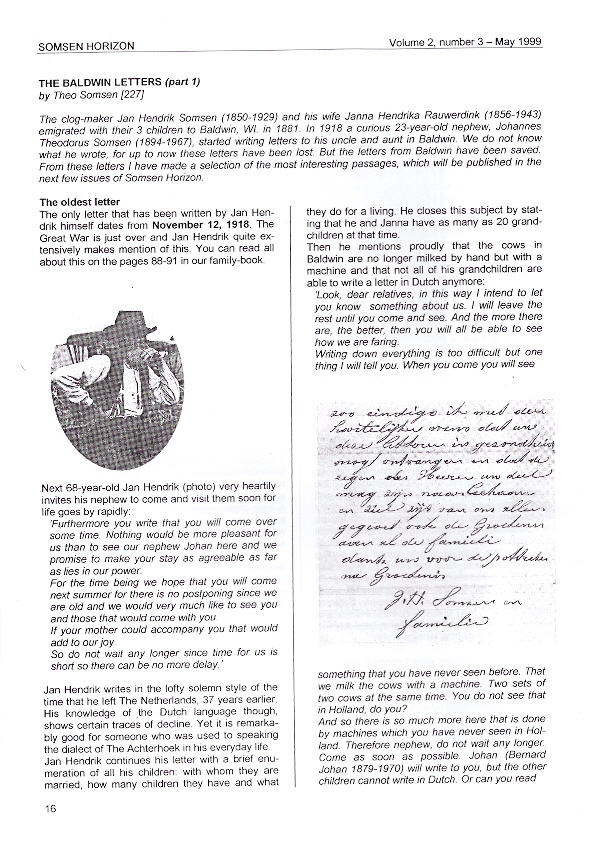 SOMSEN HORIZON
Volume 2, number 3 – May 1999
THE BALDWIN LETTERS (part 1)
by Theo Somsen [227]
The clog-maker Jan Hendrik Somsen (1850-1929) and his wife Janna Hendrika Rauwerdink (1856-1943)
emigrated with their 3 children to Baldwin, WI. in 1881. In 1918 a curious 23-year-old nephew, Johannes
Theodorus Somsen (1894-1967), started writing letters to his uncle and aunt in Baldwin. We do not know
what he wrote, for up to now these letters have been lost. But the letters from Baldwin have been saved.
From these letters I have made a selection of the most interesting passages, which will be published in the
next few issues of Somsen Horizon.
The oldest letter
The only letter that has been written by Jan Hen-
drik himself dates from November 12, 1918. The
Great War is just over and Jan Hendrik quite ex-
tensively makes mention of this. You can read all
about this on the pages 88-91 in our family-book.
Next 68-year-old Jan Hendrik (photo) very heartily
invites his nephew to come and visit them soon for
life goes by rapidly:
'Furthermore you write that you will come over
some time. Nothing would be more pleasant for
us than to see our nephew Johan here and we
promise to make your stay as agreeable as far
as lies in our power.
For the time being we hope that you will come
next summer for there is no postponing since we
are old and we would very much like to see you
and those that would come with you.
If your mother could accompany you that would
add to our joy.
So do not wait any longer since time for us is
short so there can be no more delay.'
Jan Hendrik writes in the lofty solemn style of the
time that he left The Netherlands, 37 years earlier.
His knowledge of the Dutch language though,
shows certain traces of decline. Yet it is remarka-
bly good for someone who was used to speaking
the dialect of The Achterhoek in his everyday life.
Jan Hendrik continues his letter with a brief enu-
meration of all his children: with whom they are
married, how many children they have and what
they do for a living. He closes this subject by stat-
ing that he and Janna have as many as 20 grand-
children at that time.
Then he mentions proudly that the cows in
Baldwin are no longer milked by hand but with a
machine and that not all of his grandchildren are
able to write a letter in Dutch anymore:
'Look, dear relatives, in this way I intend to let
you know something about us. I will leave the
rest until you come and see. And the more there
are, the better, then you will all be able to see
how we are faring.
Writing down everything is too difficult but one
thing I will tell you. When you come you will see
zoo eindige ik met den
hartelijken wens dat uw
deze letteren in gezondheid
mag ontvangen en dat de
zegen des Heeren uw deel
mag zijn naar lichaam
en ziel zijt van ons allen
gegroet ook de Groetenis
aan al de familie
dank uw voor de
na Groetenis
J.H. Somsen en
familie
something that you have never seen before. That
we milk the cows with a machine. Two sets of
two cows at the same time. You do not see that
in Holland, do you?
And so there is so much more here that is done
by machines which you have never seen in Hol-
land. Therefore nephew, do not wait any longer.
Come as soon as possible. Johan (Bernard
Johan 1879-1970) will write to you, but the other
children cannot write in Dutch. Or can you read
16